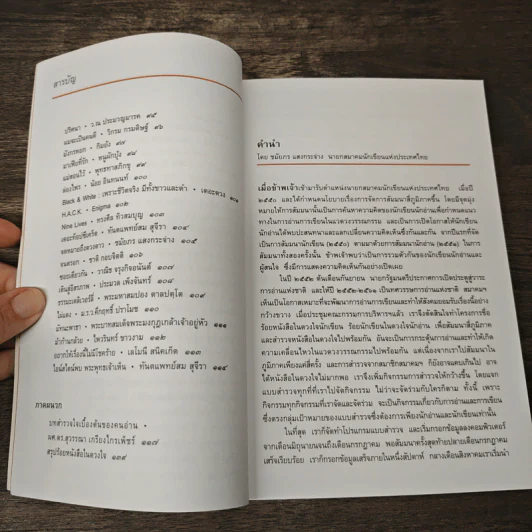 สารบัญ
ปริศนา • ว.ณ ประมวญมารค ๙๕
ผมจะเป็นคนดี • วิกรม กรมดิษฐ์ ๙๖
มังกรหยก • กิมย้ง
มาเฟียที่รัก • หนูผักบุ้ง
แม่สอนไว้ • พุทธทาสภิกขุ ๙๙
ล่องไพร • น้อย อินทนนท์ ๑๐๐
Black & White : เพราะชีวิตจริง มีทั้งขาวและดำ • เดอะดวง ๑๐๑
H.A.C.K. • Enigma ๑๐๒
Nine Lives • ทรงศีล ทิวสมบุญ ๑๐๓
เดอะท็อปซีเคร็ต • ทันตแพทย์สม สุจีรา ๑๐๔
จดหมายถึงดวงดาว • ชมัยภร แสงกระจ่าง ๑๐๕
จนตรอก • ชาติ กอบจิตติ ๑๐๖
ช่อเดียวกัน • วาณิช จรุงกิจอนันต์ ๑๐๗
เดินสู่อิสรภาพ • ประมวล เพ็งจันทร์ ๑๐๘
ธรรมะเดลิเวอรี่ • พระมหาสมปอง ตาลปุตฺโต ๑๐๙
ไผ่แดง • ม.ร.ว.คึกฤทธิ์ ปราโมช ๑๑๐
มัทนะพาธา • พระบาทสมเด็จพระมงกุฎเกล้าเจ้าอยู่หัว ๑๑๑
ม้าก้านกล้วย • ไพวรินทร์ ขาวงาม ๑๑๒
อยากให้เรื่องนี้ไม่มีโชคร้าย • เลโมนี สนิคเก็ต ๑๑๓
ไอน์สไตน์พบ พระพุทธเจ้าเห็น • ทันตแพทย์สม สุจีรา ๑๑๔
ภาคผนวก
บทสำรวจใจเบื้องต้นของคนอ่าน •
ผศ.ดร.สุวรรณา เกรียงไกรเพ็ชร์ ๑๑๗
สรุปร้อยหนังสือในดวงใจ ๑๓๑
คำนำ
โดย ชมัยภร แสงกระจ่าง นายกสมาคมนักเขียนแห่งประเทศไทย
เมื่อข้าพเจ้าเข้ามารับตำแหน่งนายกสมาคมนักเขียนแห่งประเทศไทย เมื่อปี
๒๕๕๐ และได้กำหนดนโยบายเรื่องการจัดการสัมมนาสี่ภูมิภาคขึ้น โดยมีจุดมุ่ง
หมายให้การสัมมนานั้นเป็นการค้นหาความคิดของนักเขียนนักอ่านเพื่อกำหนดแนว
ทางในการอ่านการเขียนในแวดวงวรรณกรรม และเป็นการเปิดโอกาสให้นักเขียน
นักอ่านได้พบปะสนทนาและแลกเปลี่ยนความคิดเห็นซึ่งกันและกัน จากปีแรกที่จัด
เป็นการสัมมนานักเขียน (๒๕๕๐) ตามมาด้วยการสัมมนานักอ่าน (๒๕๕๑) ในการ
สัมมนาทั้งสองครั้งนั้น ข้าพเจ้าพบว่าเป็นการรวมตัวกันของนักเขียนน้อยนักอ่านและ
ผู้สนใจ ซึ่งมีการแสดงความคิดเห็นกันอย่างเปิดเผย
ในปี ๒๕๕๒ ต้นเดือนกันยายน นายกรัฐมนตรีประกาศการเปิดประตูสู่วาระ
การอ่านแห่งชาติ และให้ปี ๒๕๕๒-๒๕๖๑ เป็นทศวรรษการอ่านแห่งชาติ สมาคมฯ
เห็นเป็นโอกาสเหมาะที่จะพัฒนาการอ่านการเขียนและทำให้สังคมยอมรับเรื่องนี้อย่าง
กว้างขวาง เมื่อประชุมคณะกรรมการบริหารแล้ว เราจึงตัดสินใจทำโครงการชื่อ
ร้อยหนังสือในดวงใจนักเขียน ร้อยนักเขียนในดวงใจนักอ่าน เพื่อสัมมนาสี่ภูมิภาค
และสำรวจหนังสือในดวงใจไปพร้อมกัน อันจะเป็นการกระตุ้นการอ่านและทำให้เกิด
ความเคลื่อนไหวในแวดวงวรรณกรรมไปพร้อมกัน แต่เนื่องจากเราไปสัมมนาใน
ภูมิภาคเพียงแค่สี่ครั้ง และการสำรวจจากสมาชิกสมาคมฯ ก็ยังอาจแคบเกินไป อาจ
ได้หนังสือในดวงใจไม่มากพอ เราจึงเพิ่มกิจกรรมการสำรวจให้กว้างขึ้น โดยแจก
แบบสำรวจทุกที่ที่เราไปจัดกิจกรรม ไม่ว่าจะจัดร่วมกับใครก็ตาม ทั้งนี้ เพราะ
กิจกรรมทุกกิจกรรมที่เราจัดและจัดร่วม จะเป็นกิจกรรมเกี่ยวกับการอ่านและการเขียน
ซึ่งตรงกลุ่มเป้าหมายของแบบสำรวจซึ่งต้องการเพียงนักอ่านและนักเขียนเท่านั้น
ในที่สุด เราก็จัดทำโปรแกรมแบบสำรวจ และเริ่มกรอกข้อมูลลงคอมพิวเตอร์
จากเดือนมิถุนายนจนถึงเดือนกรกฎาคม พอสัมมนาครั้งสุดท้ายปลายเดือนกรกฎาคม
เสร็จเรียบร้อย เราก็กรอกข้อมูลเสร็จภายในหนึ่งสัปดาห์ กลางเดือนสิงหาคมเราเริ่มนำ